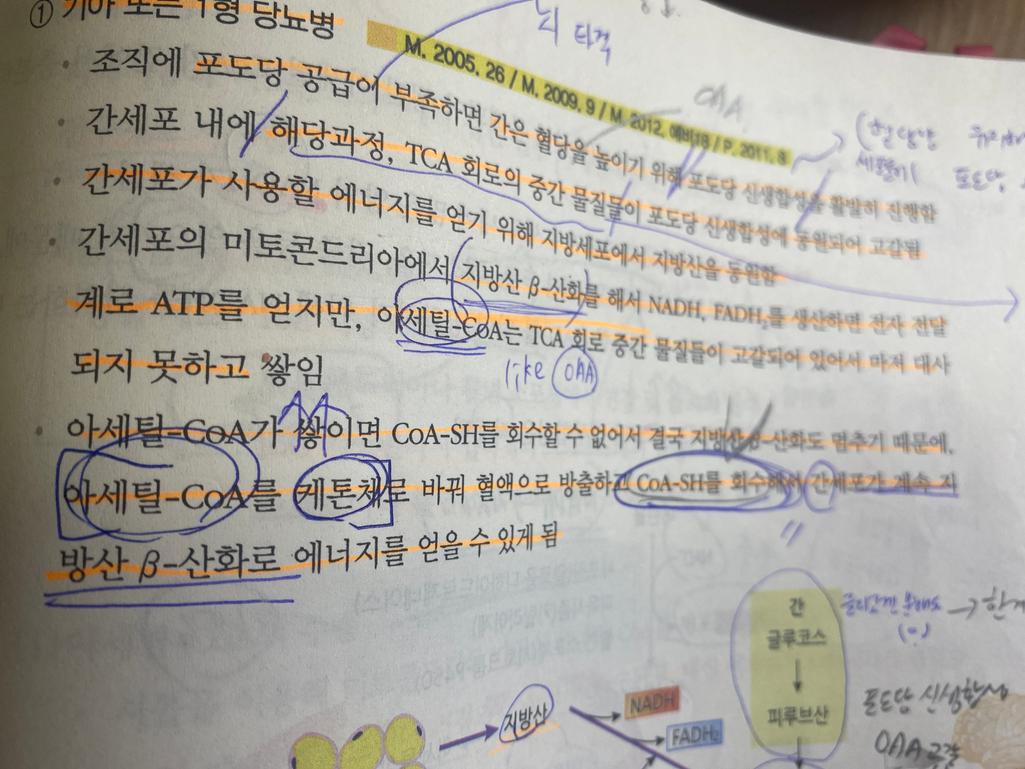 ① 기아 또는 1형 당뇨병
뇌 타격
M. 2005. 26 / M. 2009. 9 / M. 2012. 예비18 / P. 2011. 8
OAA
• 조직에 포도당 공급이 부족하면 간은 혈당을 높이기 위해 포도당 신생합성을 활발히 진행함
• 간세포 내에 해당과정, TCA 회로의 중간 물질들이 포도당 신생합성에 동원되어 고갈됨
• 간세포가 사용할 에너지를 얻기 위해 지방세포에서 지방산을 동원함
• 간세포의 미토콘드리아에서 지방산 β-산화를 해서 NADH, FADH₂를 생산하면 전자 전달
계로 ATP를 얻지만, 아세틸-CoA는 TCA 회로 중간 물질들이 고갈되어 있어서 마저 대사
되지 못하고 쌓임
like OAA
• 아세틸-CoA가 쌓이면 CoA-SH를 회수할 수 없어서 결국 지방산 β-산화도 멈추기 때문에,
아세틸-CoA를 케톤체로 바꿔 혈액으로 방출하고 CoA-SH를 회수해서 간세포가 계속 지
방산 β-산화로 에너지를 얻을 수 있게 됨
간
글루코스
피루브산
포도당 신생합성
OAA 고갈
지방산
NADH
FADH₂